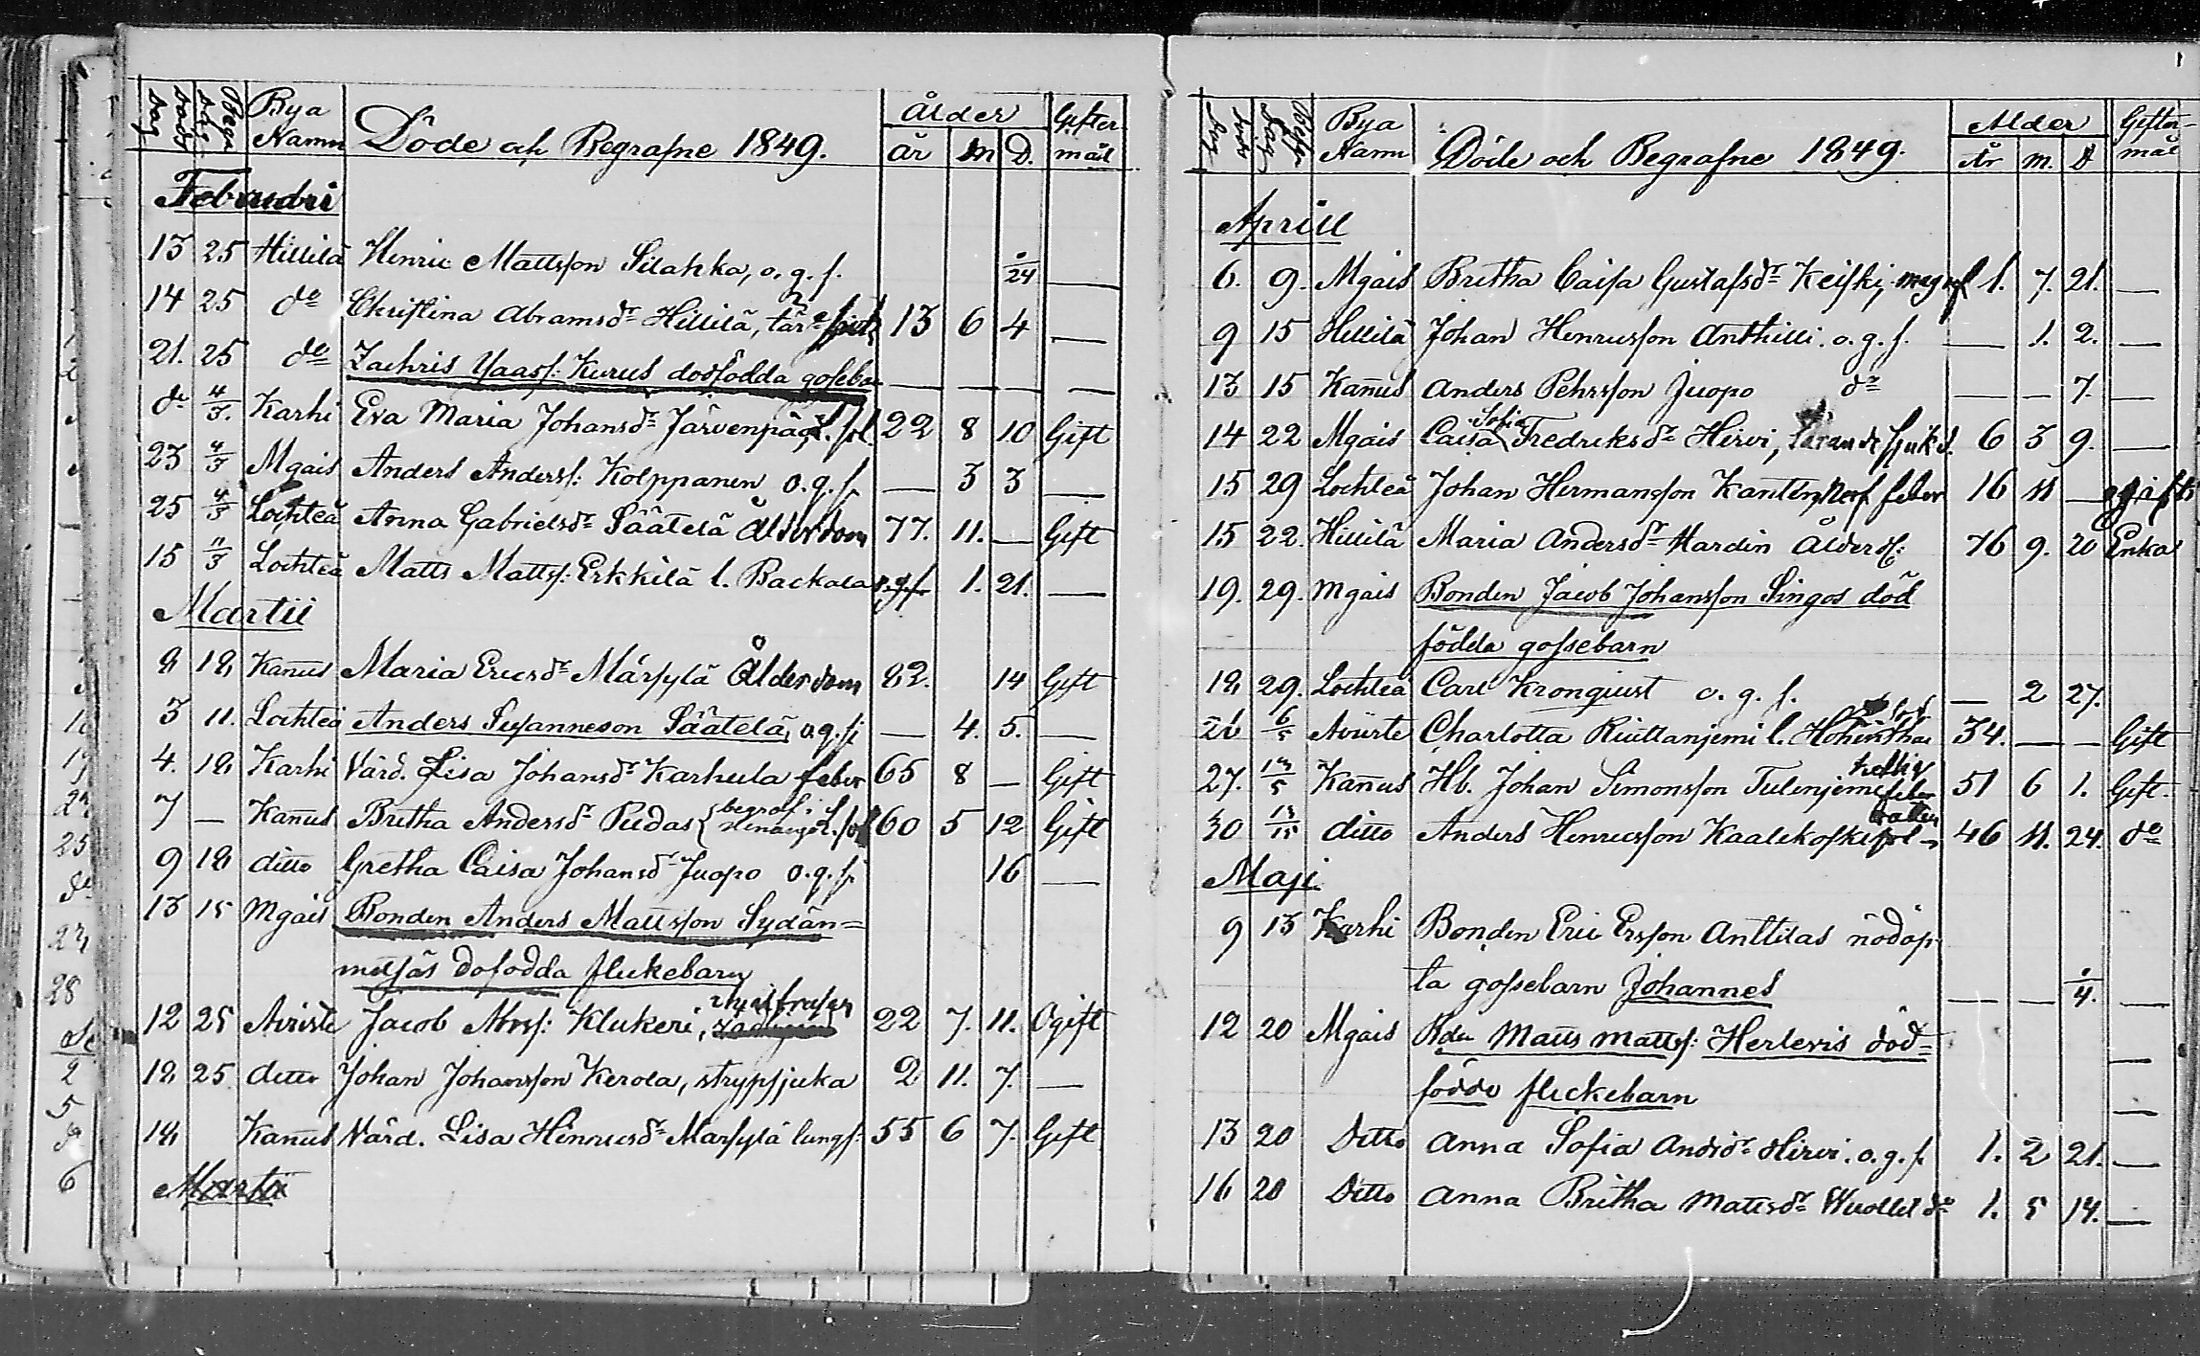 Döds dag Begr. dag Bya Namn Döde och Begrafne 1849. Ålder år m D. Gifter-mål
Februari
13 25 Hillilä Henric Mattsson Silahka, o. g. s. 1/24 —
14 25 do Christina Abramsdr Hillilä, 13 6 4 —
21. 25 do Zachris Yaass: Kurus dödfödda gossebarn — — — —
do 4/3. Karhi Eva Maria Johansdr Järvenpää 22 8 10 Gift
23 4/3 Mgais Anders Anderss: Kolppanen o. g. s. — 3 3 —
25 4/3 Lochteå Anna Gabrielsdr Säätelä Ålderdom 77. 11. — Gift
15 11/3 Lochteå Matts Mattss: Erkkilä l. Backala o.g.s. 1. 21. —
Martii
8 18 Kanus Maria Ericsdr Märsylä Ålderdom 82. 14 Gift
3 11. Lochteå Anders Susanneson Säätelä, o.g.s. — 4. 5. —
4. 18 Karhi Värd. Lisa Johansdr Karhula feber 65 8 — Gift
7 — Kanus Britha Andersdr Pudas begrof. i 60 5 12 Gift
9 18 ditto Gretha Caisa Johansdr Juopo o.g.s. 16 —
13 15 Mgais Bonden Anders Mattsson Sydän=
metsäs dofodda flickebarn
12 25 Aviriste Jacob Abrss: Klukeri, 22 7. 11. Ogift
18 25 ditto Johan Johansson Kerola, strypsjuka 2 11. 7. —
18 Kanus Värd. Lisa Henricsdr Märsylä lungs: 55 6 7. Gift
Martii
Bya Namn Döde och Begrafne 1849. Alder År m. D Gifter-mål
Aprill
6. 9. Mgais Britha Caisa Gustafsdr Keiski, 1. 7. 21. —
9 15 Hillilä Johan Henricsson Anthilli. o. g. s. — 1. 2. —
13 15 Kanus Anders Pehrsson Juopo do — — 7. —
14 22 Mgais Caisa Sofia Fredriksdr Hirvi, 6 3 9. —
15 29 Lochteå Johan Hermansson Kanten, Nerf feber 16 11 — ogift
15 22. Hillilä Maria Andersdr Hardin Ålders: 76 9. 20 Enka
19. 29. Mgais Bonden Jacob Johansson Singos död
födda gossebarn
18 29. Lochteå Carl Kronquist o. g. s. — 2 27.
21 6/5 Aviirte Charlotta Riuttanjemi l. Hohenthal 34. — — Gift
27. 13/5 Kanus Hb. Johan Simonsson Tulenjemi feber 51 6 1. Gift.
30 13/15 ditto Anders Henricsson Kaalikoski 46 11. 24. do
Maji
9 13 Karhi Bonden Eric Ersson Anttilas nödöp
ta gossebarn Johannes — — 1/4. —
12 20 Mgais Bdn Matts Mattss: Herlevis död=
födde flickebarn —
13 20 Ditto Anna Sofia Andsdr Hirvi. o. g. s. 1. 2 21. —
16 20 Ditto Anna Britha Mattsdr Wuollet do 1. 5 14. —